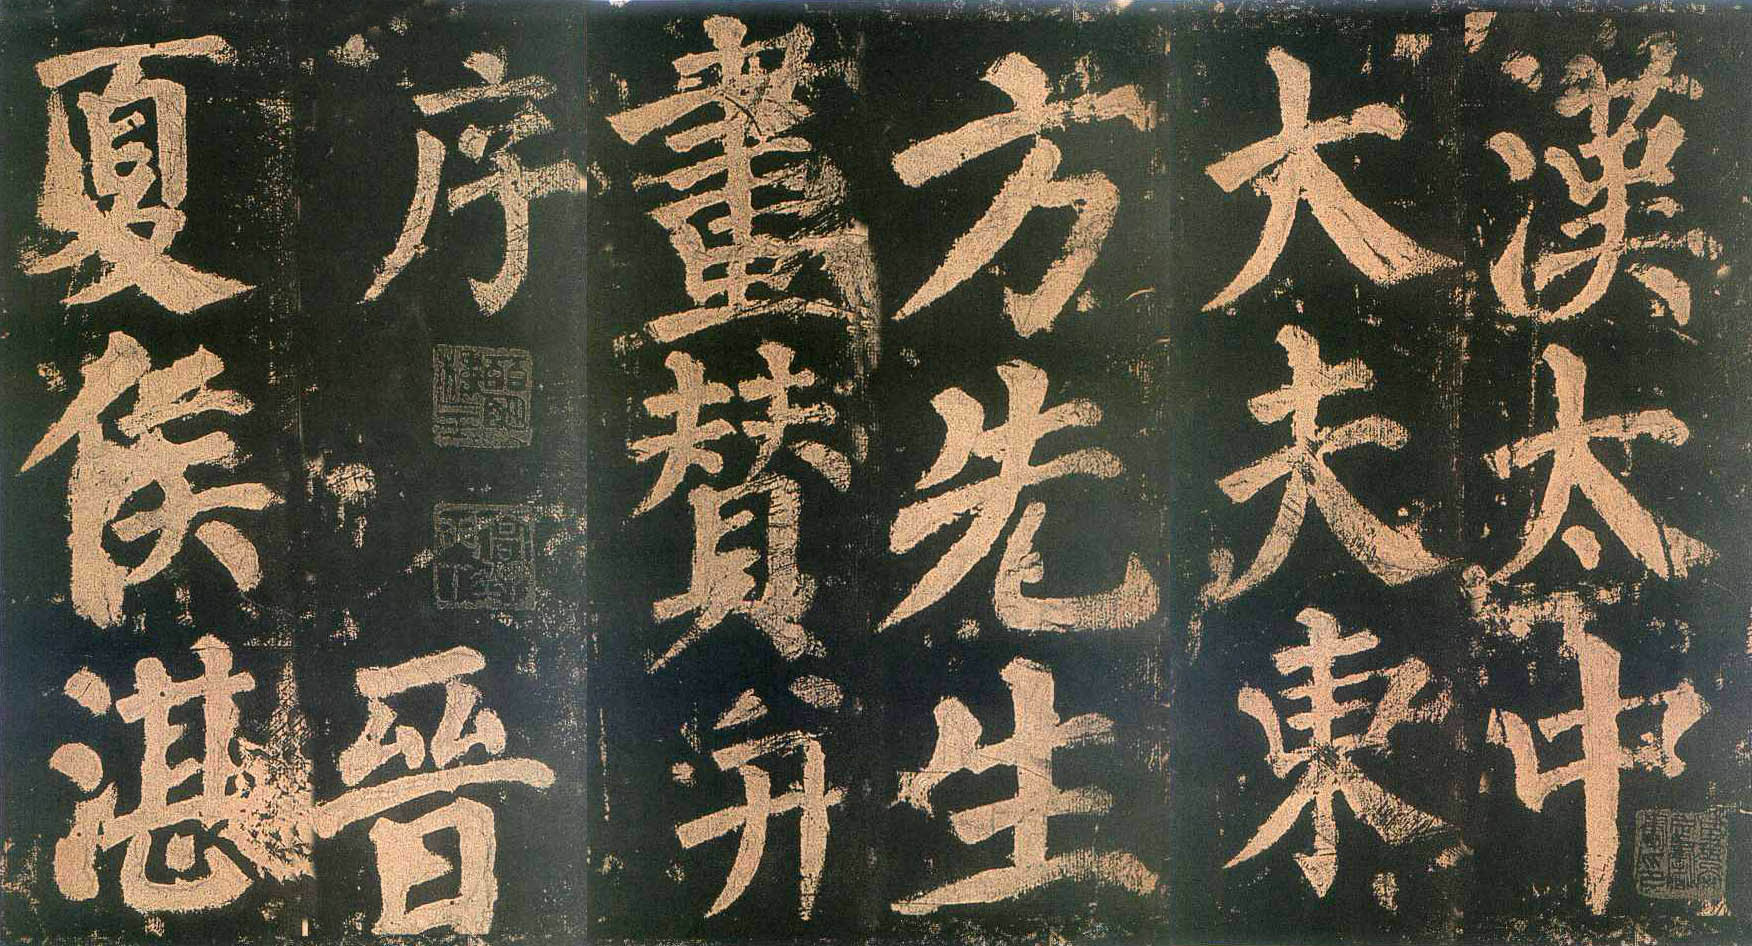 漢太中
大夫東
方先生
畫贊并
序 晉
夏侯湛